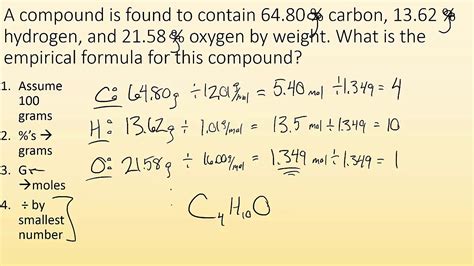 A compound is found to contain 64.80 % carbon, 13.62 %
hydrogen, and 21.58 % oxygen by weight. What is the
empirical formula for this compound?
1. Assume 100 grams
2. %'s → grams
3. G → moles
4. ÷ by smallest number
C: 64.80g ÷ 12.01g/mol = 5.40 mol ÷ 1.349 = 4
H: 13.62g ÷ 1.01g/mol = 13.5 mol ÷ 1.349 = 10
O: 21.58g ÷ 16.00g/mol = 1.349 mol ÷ 1.349 = 1
C₄H₁₀O